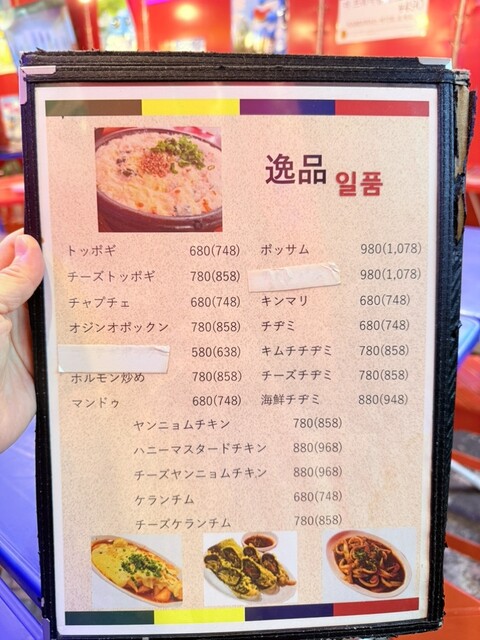 ¥490
逸品 일품
トッポギ 680(748)
チーズトッポギ 780(858)
チャプチェ 680(748)
オジンオポックン 780(858)
580(638)
ホルモン炒め 780(858)
マンドゥ 680(748)
ポッサム 980(1,078)
980(1,078)
キンマリ 680(748)
チヂミ 680(748)
キムチチヂミ 780(858)
チーズチヂミ 780(858)
海鮮チヂミ 880(948)
ヤンニョムチキン 780(858)
ハニーマスタードチキン 880(968)
チーズヤンニョムチキン 880(968)
ケランチム 680(748)
チーズケランチム 780(858)